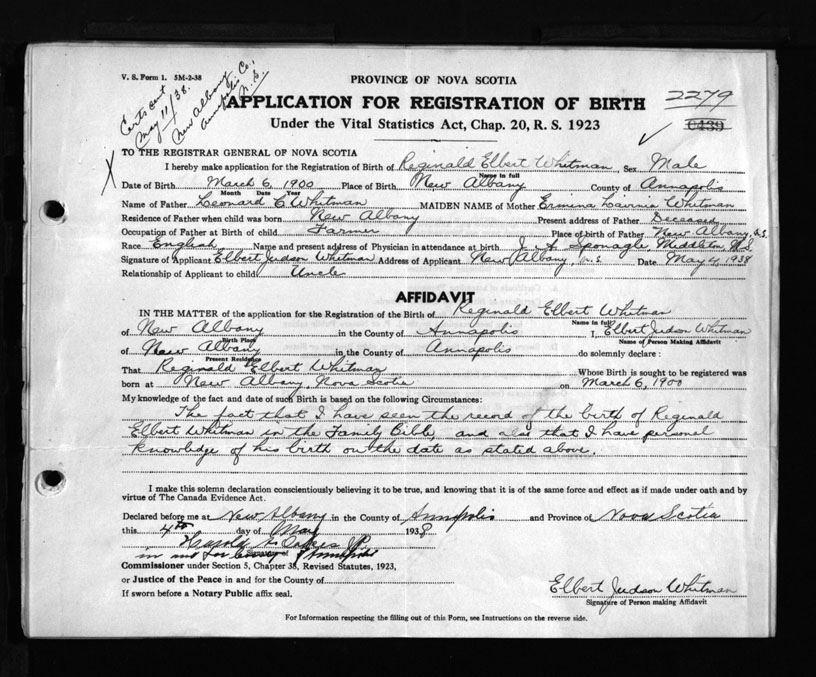 V. S. Form 1. 5M-2-38
Cert sent
May 11/38.
New Albany
Annapolis Co.,
N. S.
PROVINCE OF NOVA SCOTIA
APPLICATION FOR REGISTRATION OF BIRTH
2279
Under the Vital Statistics Act, Chap. 20, R. S. 1923
TO THE REGISTRAR GENERAL OF NOVA SCOTIA
I hereby make application for the Registration of Birth of Reginald Elbert Whitman, Sex Male
Name in full
Date of Birth March 6, 1900 Place of Birth New Albany County of Annapolis
Month Date Year
Name of Father Leonard C Whitman MAIDEN NAME of Mother Ermina Whitman
Residence of Father when child was born New Albany Present address of Father Deceased
Occupation of Father at Birth of child Farmer Place of birth of Father New Albany, N.S.
Race English Name and present address of Physician in attendance at birth J. A. Sponagle, Middleton, N.S.
Signature of Applicant Elbert Judson Whitman Address of Applicant New Albany, N.S. Date May 4, 1938
Relationship of Applicant to child Uncle
AFFIDAVIT
IN THE MATTER of the application for the Registration of the Birth of Reginald Elbert Whitman
Name in full
of New Albany in the County of Annapolis I, Elbert Judson Whitman
Birth Place Name of Person Making Affidavit
of New Albany in the County of Annapolis do solemnly declare :
Present Residence
That Reginald Elbert Whitman Whose Birth is sought to be registered was
born at New Albany, Nova Scotia on March 6, 1900
My knowledge of the fact and date of such Birth is based on the following Circumstances:
The fact that I have seen the record of the birth of Reginald
Elbert Whitman in the Family Bible, and also that I have personal
knowledge of his birth on the date as stated above.
I make this solemn declaration conscientiously believing it to be true, and knowing that it is of the same force and effect as if made under oath and by
virtue of The Canada Evidence Act.
Declared before me at New Albany in the County of Annapolis and Province of Nova Scotia
this 4th day of May 1938
Harold A. Oakes J.P.
in and for County of Annapolis
Commissioner under Section 5, Chapter 38, Revised Statutes, 1923,
or Justice of the Peace in and for the County of
If sworn before a Notary Public affix seal.
Elbert Judson Whitman
Signature of Person making Affidavit
For Information respecting the filling out of this Form, see Instructions on the reverse side.